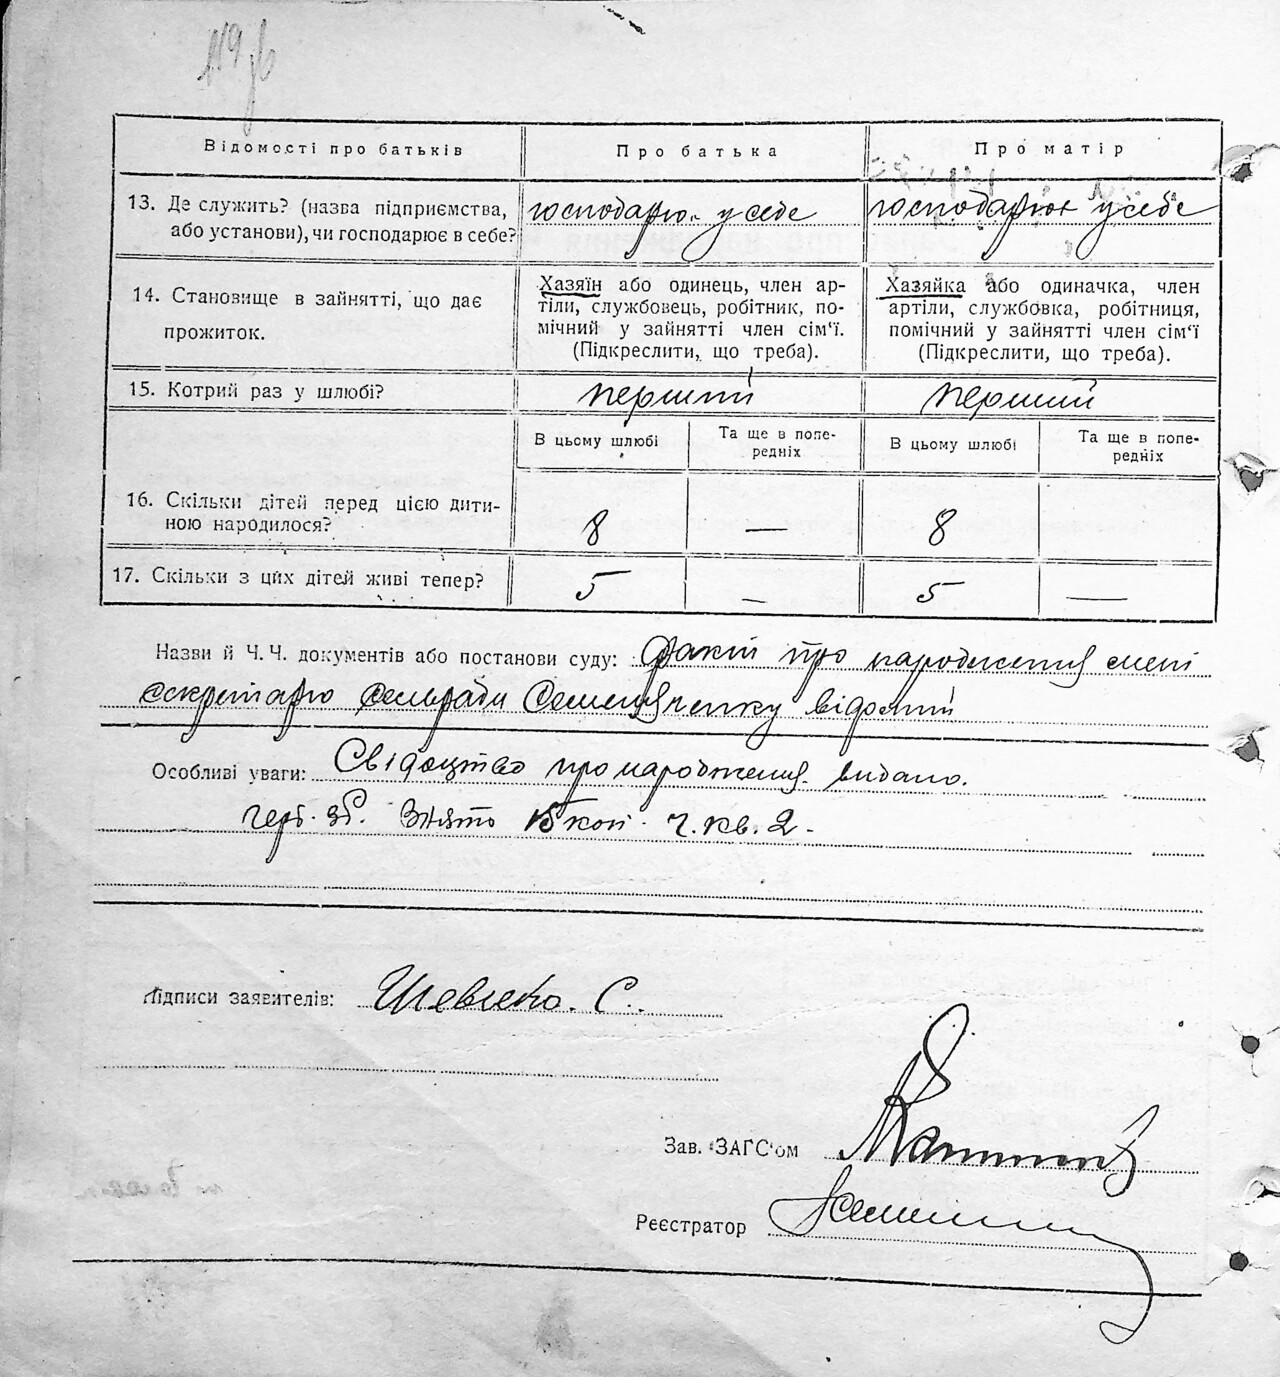 119 зв
Відомості про батьків Про батька Про матір
13. Де служить? (назва підприємства, господарює у себе господарює у себе
або установи), чи господарює в себе?
14. Становище в зайнятті, що дає
прожиток.
Хазяїн або одинець, член ар-
тіли, службовець, робітник, по-
мічний у зайнятті член сім'ї.
(Підкреслити, що треба).
Хазяйка або одиначка, член
артіли, службовка, робітниця,
помічний у зайнятті член сім'ї
(Підкреслити, що треба).
15. Котрий раз у шлюбі? перший перший
В цьому шлюбі Та ще в попе-
редніх
В цьому шлюбі Та ще в попе-
редніх
16. Скільки дітей перед цією дити-
ною народилося? 8 — 8
17. Скільки з цих дітей живі тепер? 5 — 5 —
Назви й Ч.Ч. документів або постанови суду: Факт про народження мені
секретарю сельради Семенченку відомий
Особливі уваги: Свідоцтво про народження видано.
герб. зб. Знято 15 коп. ч. кв. 2.
Підписи заявителів: С.
Зав. ЗАГС'ом
Реєстратор